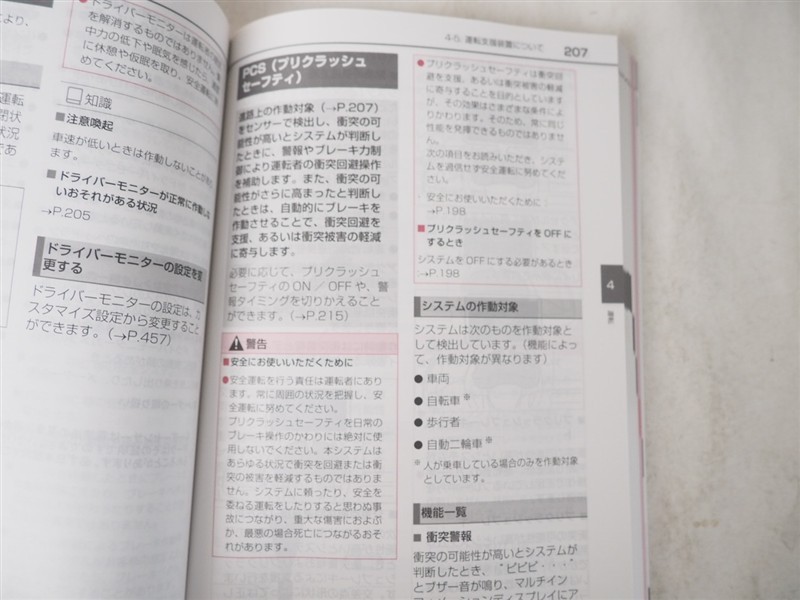 ドライバーモニターは運転者の
を解消するものではありません。集
中力の低下や眠気を感じたら、適切
に休憩や仮眠を取り、安全運転に努
めてください。
知識
■ 注意喚起
車速が低いときは作動しないことがあり
ます。
■ ドライバーモニターが正常に作動しな
いおそれがある状況
→P.205
ドライバーモニターの設定を変
更する
ドライバーモニターの設定は、カ
スタマイズ設定から変更すること
ができます。（→P.457）
4-5. 運転支援装置について
207
PCS（プリクラッシュ
セーフティ）
進路上の作動対象（→P.207）
をセンサーで検出し、衝突の可
能性が高いとシステムが判断し
たときに、警報やブレーキ力制
御により運転者の衝突回避操作
を補助します。また、衝突の可
能性がさらに高まったと判断し
たときは、自動的にブレーキを
作動させることで、衝突回避を
支援、あるいは衝突被害の軽減
に寄与します。
必要に応じて、プリクラッシュ
セーフティのON ／ OFFや、警
報タイミングを切りかえること
ができます。（→P.215）
警告
■安全にお使いいただくために
●安全運転を行う責任は運転者にあり
ます。常に周囲の状況を把握し、安
全運転に努めてください。
プリクラッシュセーフティを日常の
ブレーキ操作のかわりには絶対に使
用しないでください。本システムは
あらゆる状況で衝突を回避または衝
突の被害を軽減するものではありま
せん。システムに頼ったり、安全を
委ねる運転をしたりすると思わぬ事
故につながり、重大な傷害におよぶ
か、最悪の場合死亡につながるおそ
れがあります。
●プリクラッシュセーフティは衝突回
避を支援、あるいは衝突被害の軽減
に寄与することを目的としています
が、その効果はさまざまな条件によ
りかわります。そのため、常に同じ
性能を発揮できるものではありませ
ん。
次の項目をお読みいただき、システ
ムを過信せず安全運転に努めてくだ
さい。
・ 安全にお使いいただくために：
→P.198
■プリクラッシュセーフティを OFF に
するとき
システムを OFF にする必要があるとき：
→P.198
システムの作動対象
システムは次のものを作動対象と
して検出しています。（機能によっ
て、作動対象が異なります）
● 車両
● 自転車※
● 歩行者
● 自動二輪車※
※ 人が乗車している場合のみを作動対象
としています。
機能一覧
■ 衝突警報
衝突の可能性が高いとシステムが
判断したとき、“ピピピ・・・”
とブザー音が鳴り、マルチイン
4